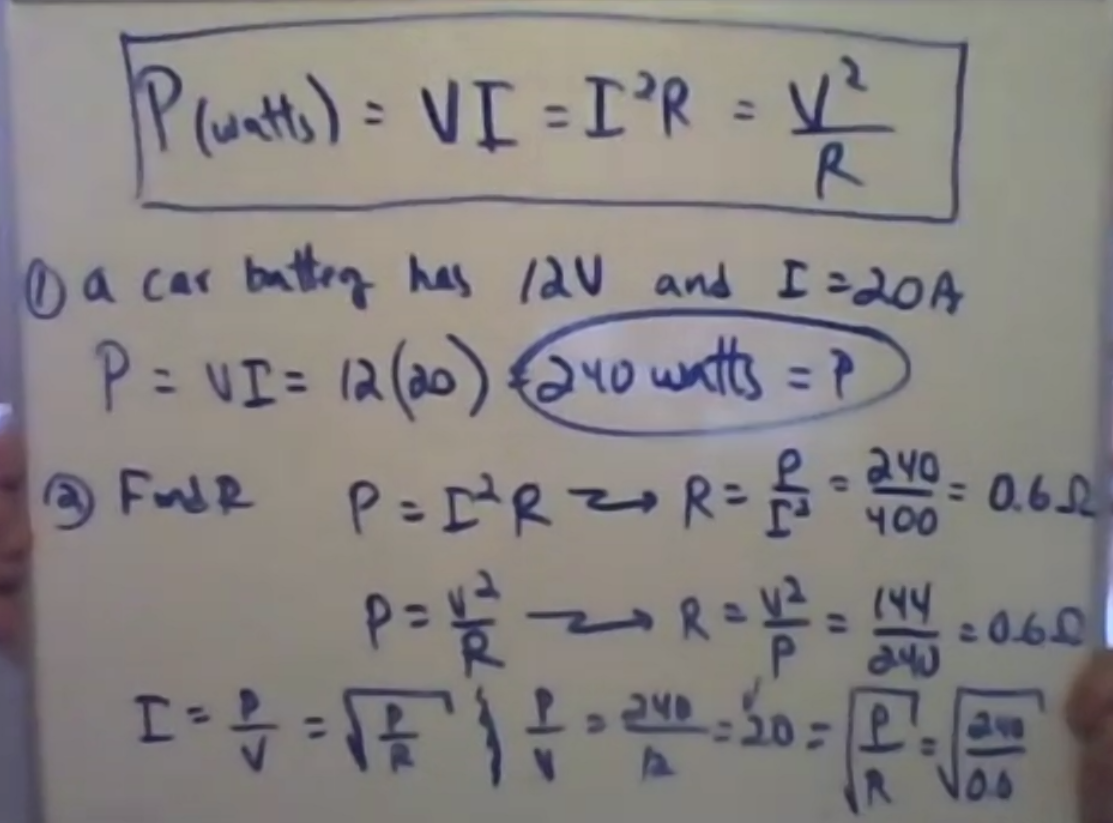 P (watts) = VI = I²R = V²/R
① a car battery has 12V and I = 20A
P = VI = 12(20) = 240 watts = P
② Find R P = I²R → R = P/I² = 240/400 = 0.6Ω
P = V²/R → R = V²/P = 144/240 = 0.6Ω
I = P/V = √(P/R) } P/V = 240/12 = 20 = √(P/R) = √(240/0.6)